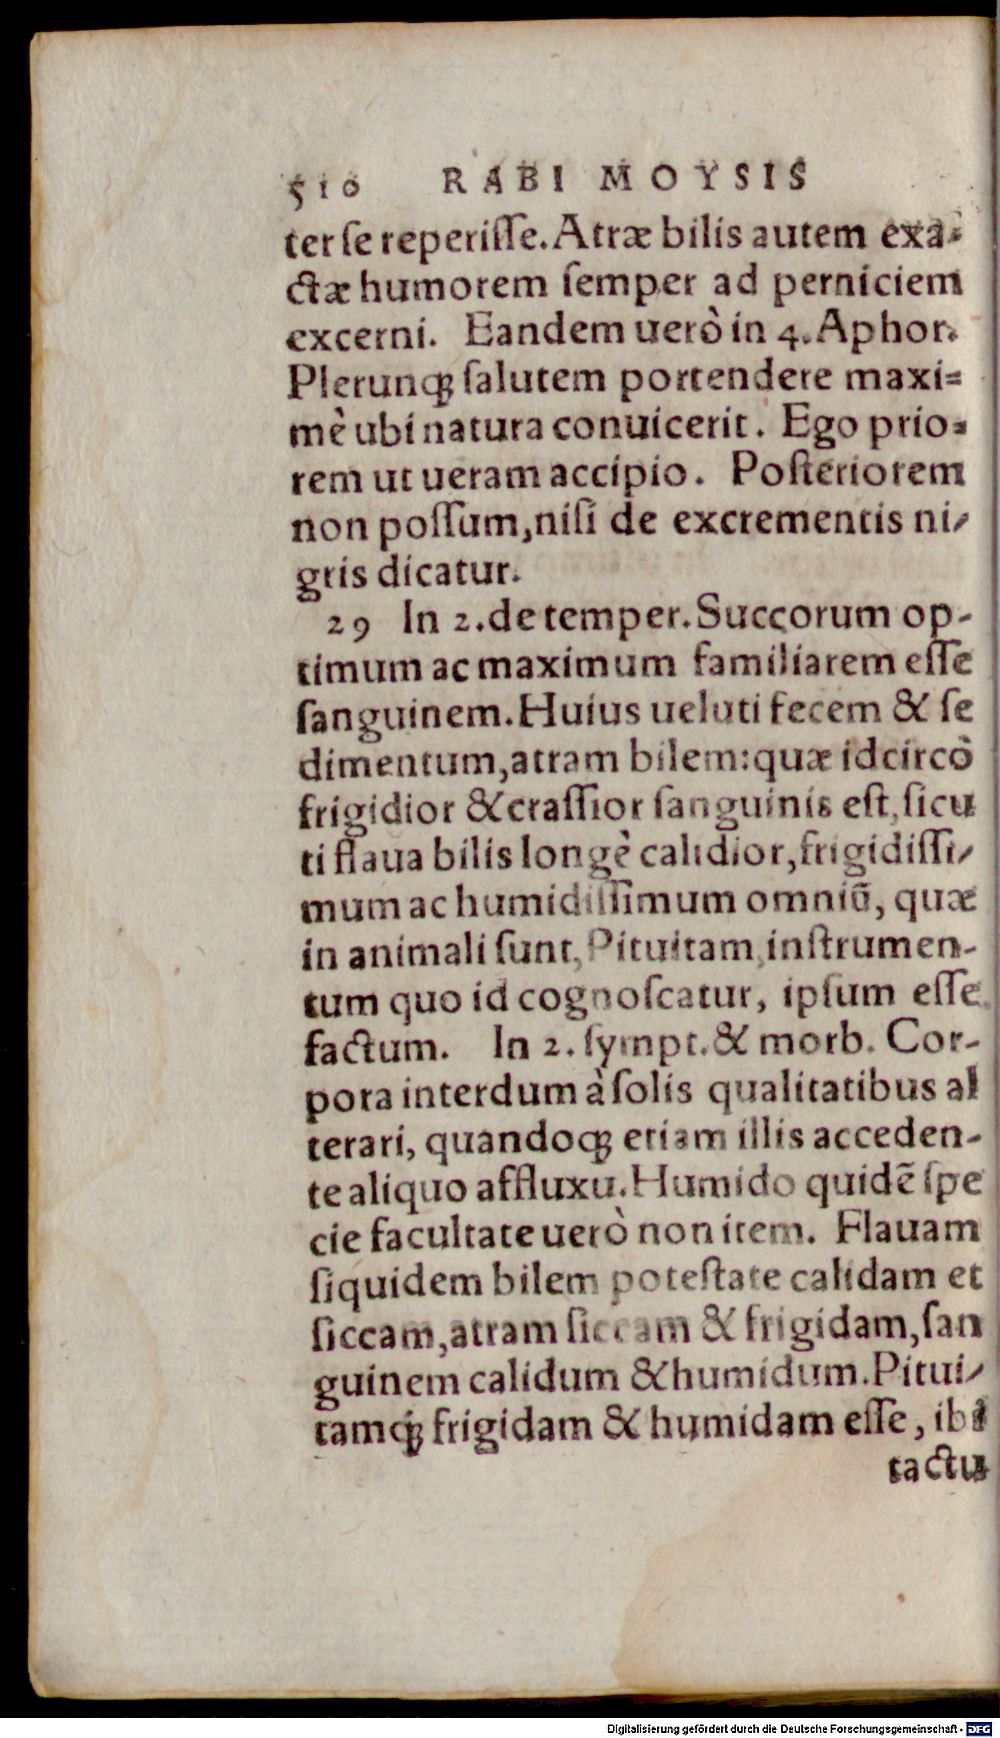 510 RABI MOYSIS
ter ſe reperiſſe. Atræ bilis autem exa-
ctæ humorem ſemper ad perniciem
excerni. Eandem uerò in 4. Aphor.
Plerunqꝫ ſalutem portendere maxi=
mè ubi natura conuicerit. Ego prio=
rem ut ueram accipio. Poſteriorem
non poſſum, niſi de excrementis ni-
gris dicatur.
29 In 2. de temper. Succorum op-
timum ac maximum familiarem eſſe
ſanguinem. Huius ueluti fecem & ſe
dimentum, atram bilem: quæ idcircò
frigidior & craſſior ſanguinis eſt, ſicu
ti flaua bilis longè calidior, frigidiſſi-
mum ac humidiſſimum omniū, quæ
in animali ſunt, Pituitam, inſtrumen-
tum quo id cognoſcatur, ipſum eſſe
factum. In 2. ſympt. & morb. Cor-
pora interdum à ſolis qualitatibus al
terari, quandoqꝫ etiam illis acceden-
te aliquo affluxu. Humido quidē ſpe
cie facultate uerò non item. Flauam
ſiquidem bilem poteſtate calidam et
ſiccam, atram ſiccam & frigidam, ſan
guinem calidum & humidum. Pitui-
tamqꝫ frigidam & humidam eſſe, ibi
tactu
Digitalisierung gefördert durch die Deutsche Forschungsgemeinschaft - DFG